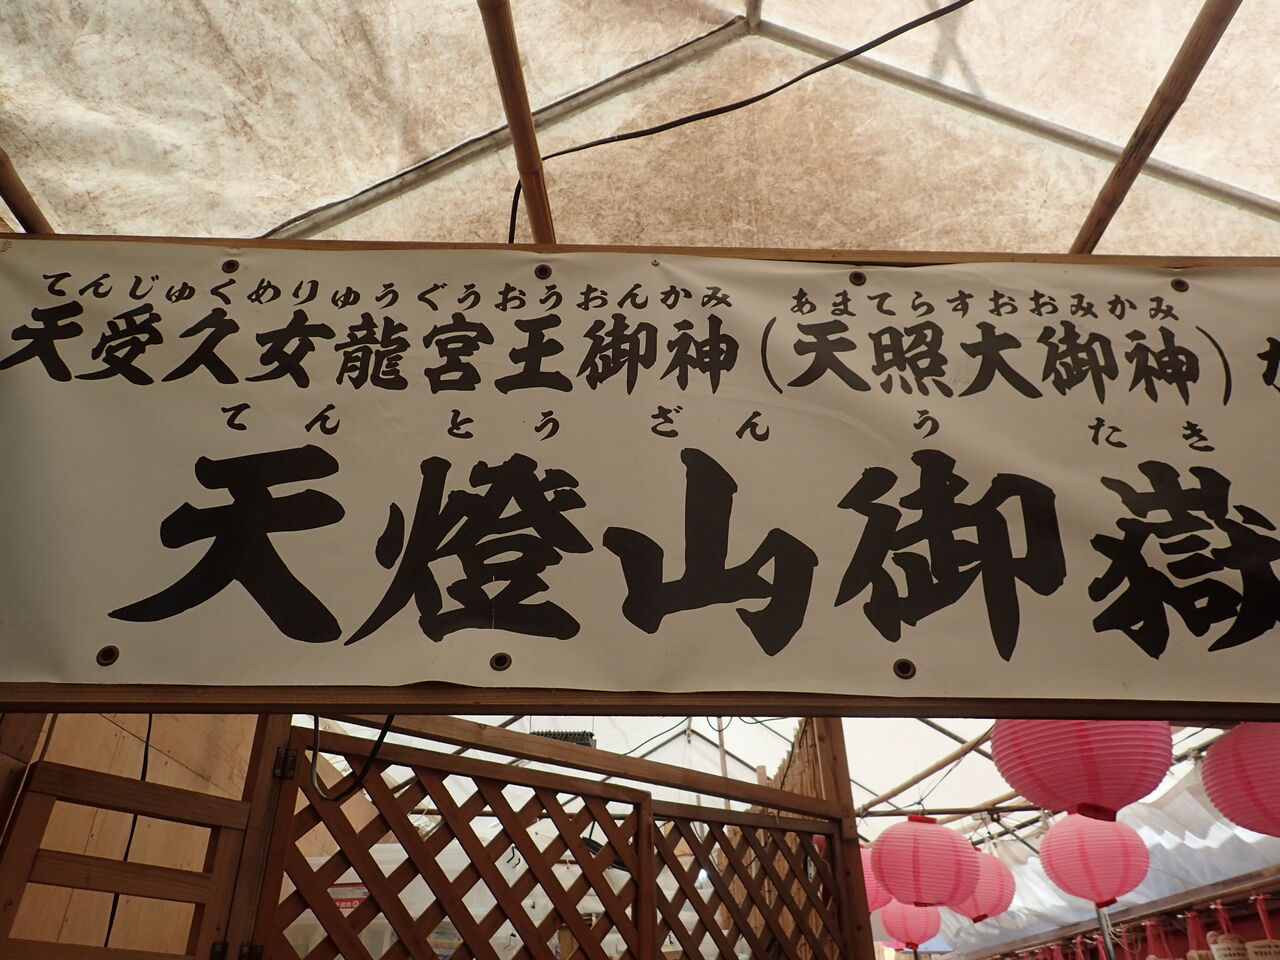 てんじゅくめりゅうぐうおうおんかみ あまてらすおおみかみ
天受久女龍宮王御神(天照大御神)
てんとうざん うたき
天燈山御嶽